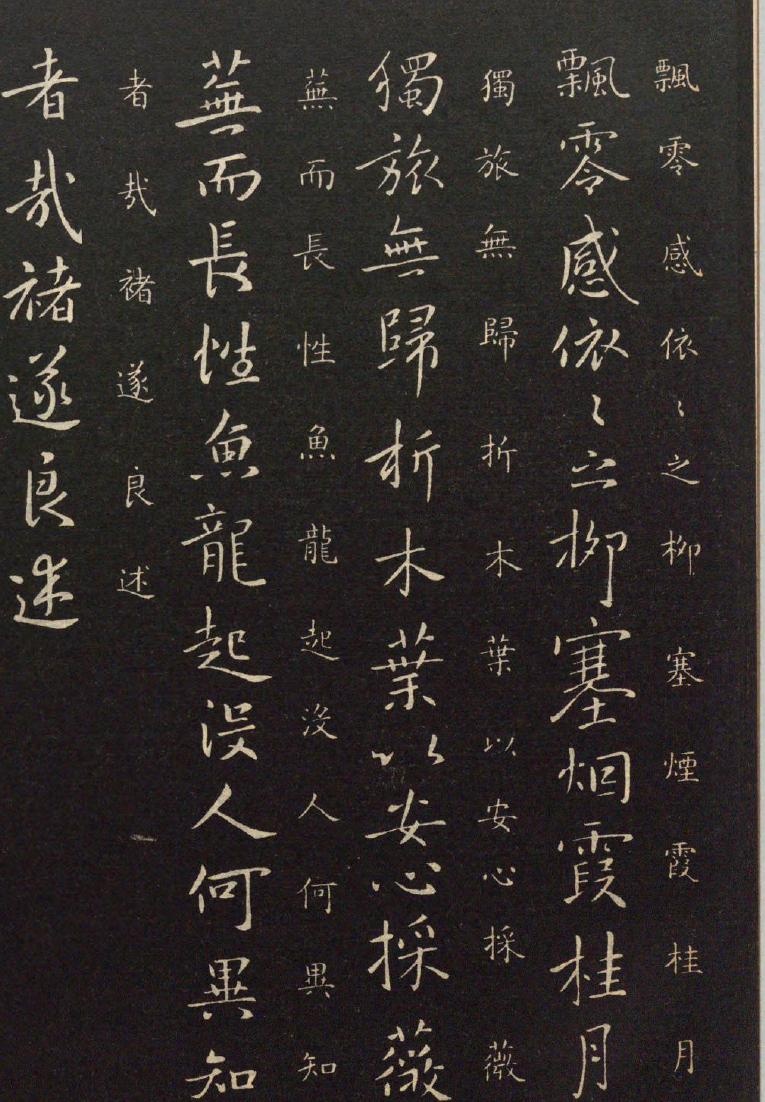 飄零感依〻之柳塞煙霞桂月
飄零感依〻之柳塞烟霞桂月
獨旅無歸折木葉以安心採薇
獨旅無歸折木葉以安心採薇
蕪而長性魚龍起沒人何異知
蕪而長性魚龍起沒人何異知
者哉褚遂良述
者哉褚遂良述